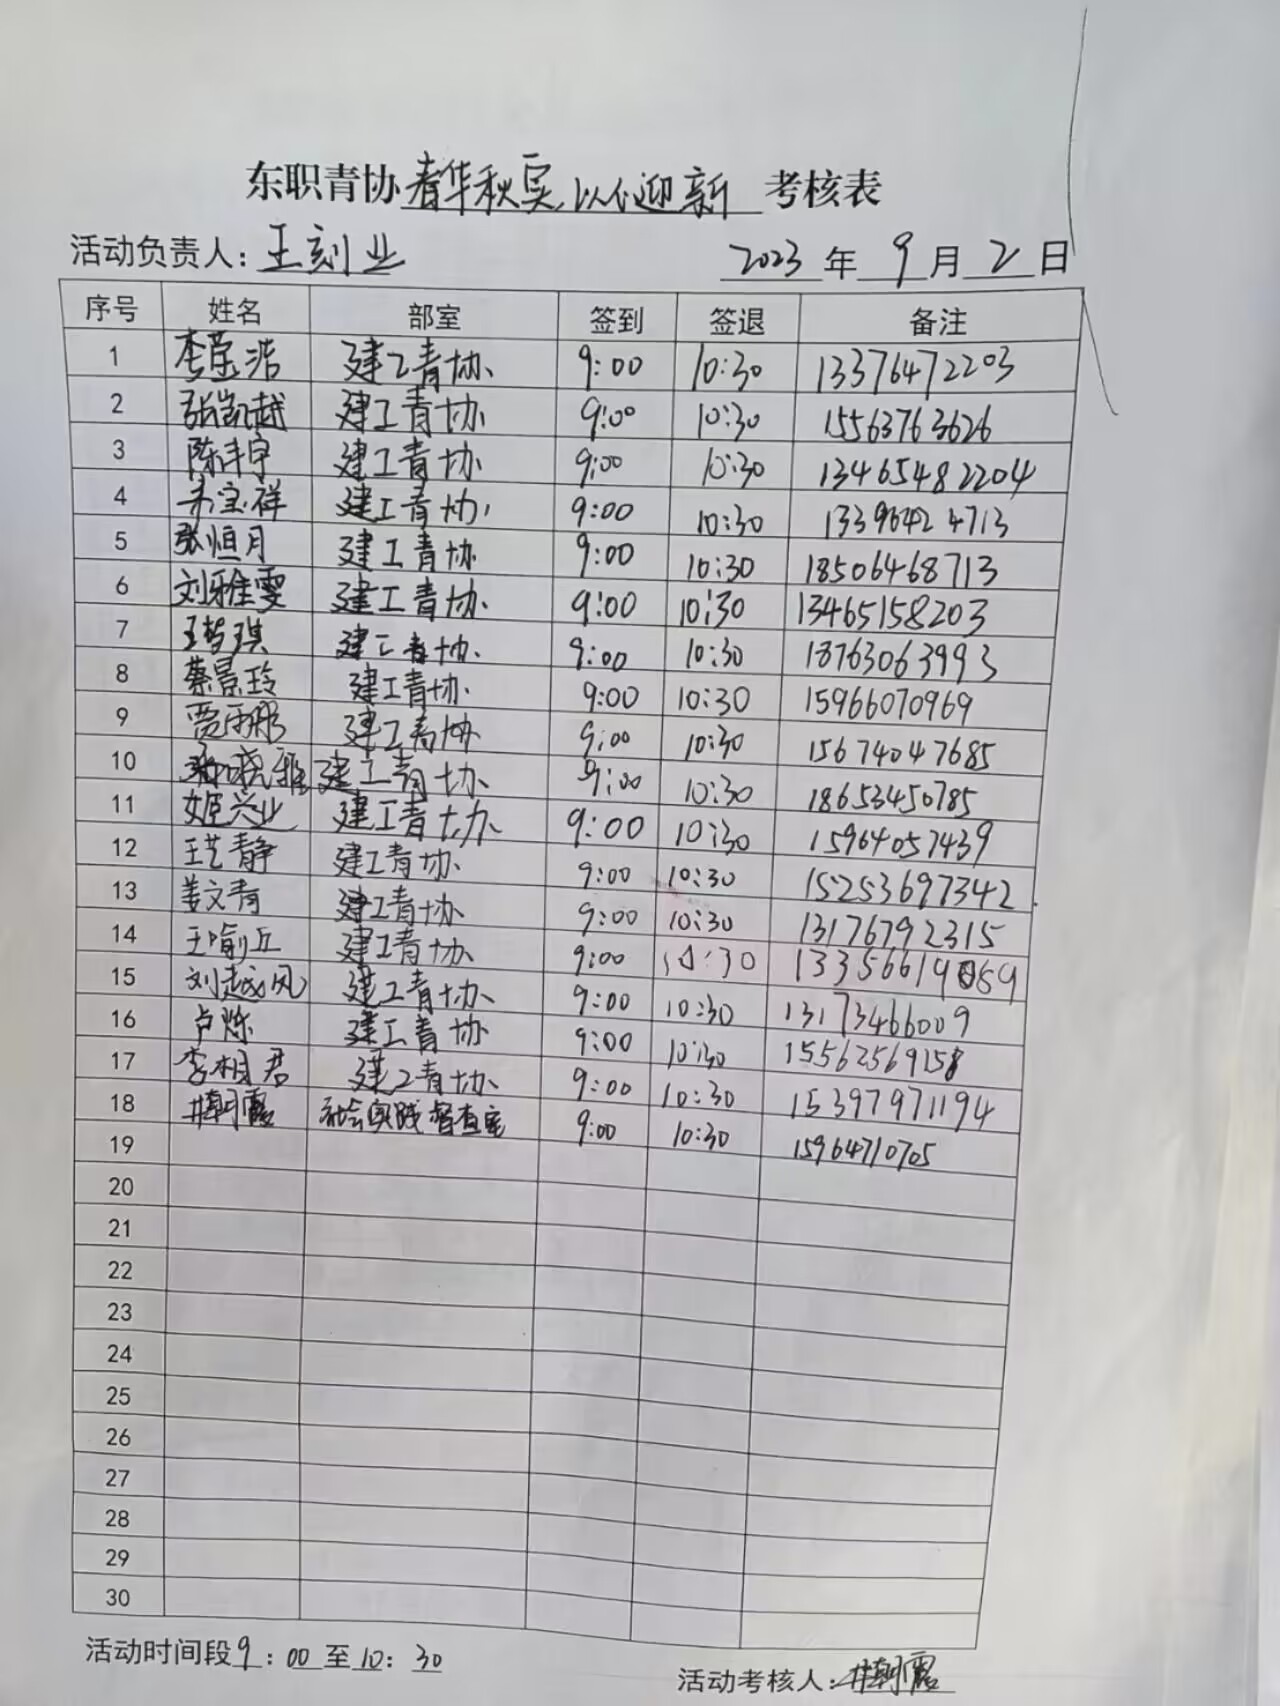 东职青协春华秋实 以心迎新 考核表
活动负责人：王刻业 2023年9月2日
序号 姓名 部室 签到 签退 备注
1 李玺浩 建工青协 9:00 10:30 13376472203
2 张凯越 建工青协 9:00 10:30 15563763626
3 陈沣宇 建工青协 9:00 10:30 13465482204
4 宝祥 建工青协 9:00 10:30 13396424713
5 张恒月 建工青协 9:00 10:30 18506468713
6 刘雅雯 建工青协 9:00 10:30 13465158203
7 王梦琪 建工青协 9:00 10:30 18763063993
8 蔡景玲 建工青协 9:00 10:30 15966070969
9 贾雨彤 建工青协 9:00 10:30 15674047685
10 晓雅 建工青协 9:00 10:30 18653450785
11 姬兴业 建工青协 9:00 10:30 15964057439
12 王艺静 建工青协 9:00 10:30 15253697342
13 姜文青 建工青协 9:00 10:30 13176792315
14 王喻丘 建工青协 9:00 10:30 13356619059
15 刘越风 建工青协 9:00 10:30 13173466009
16 卢烁 建工青协 9:00 10:30 15562569158
17 李相君 建工青协 9:00 10:30 15397971194
18 井朝露 社会实践督查室 9:00 10:30 15964710705
19
20
21
22
23
24
25
26
27
28
29
30
活动时间段9：00至10：30
活动考核人：井朝露